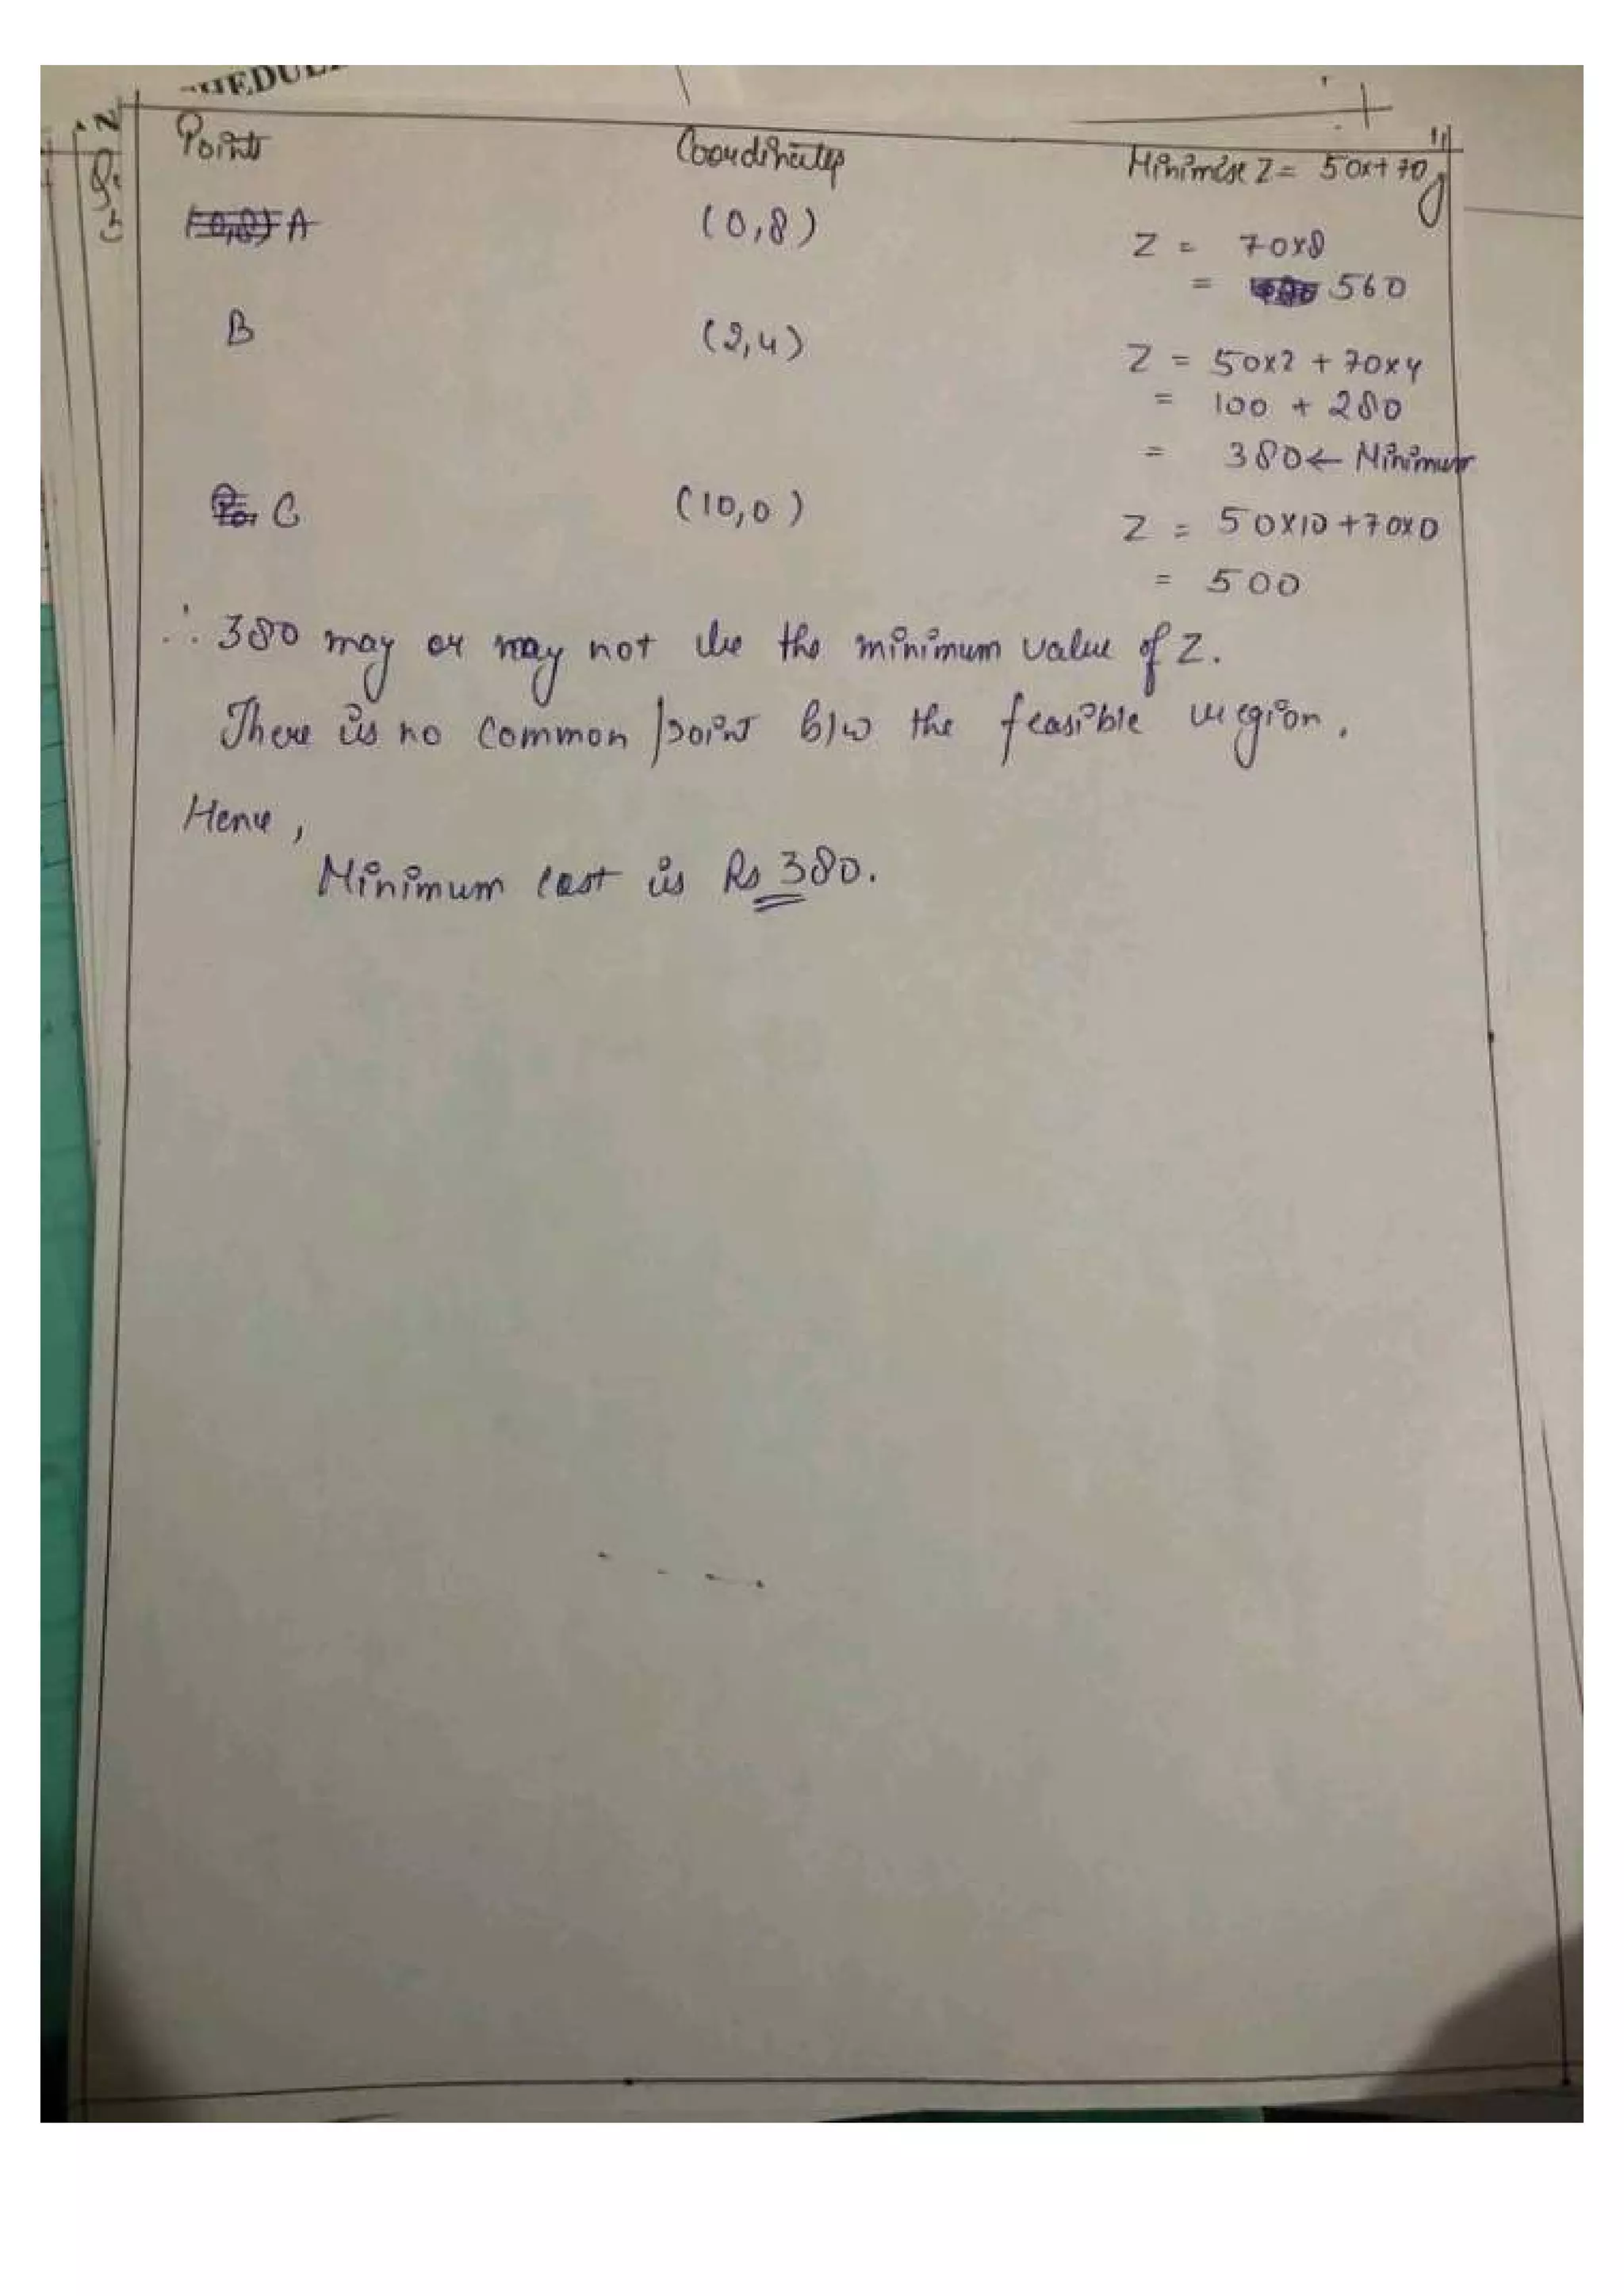 Points Coordinates Minimise Z = 50x+70y
A (0,8) Z = 70x8
= 560
B (2,4) Z = 50x2 + 70x4
= 100 + 280
= 380 ← Minimum
C (10,0) Z = 50x10+70x0
= 500
∴ 380 may or may not be the minimum value of Z.
There is no common point b/w the feasible region.
Hence,
Minimum cost is Rs 380.